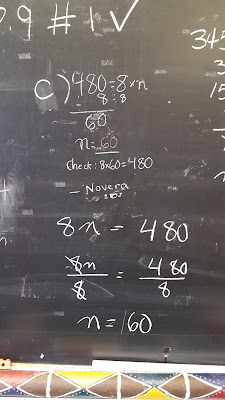 0.9 # 1 ✓
345
3
15
c) 480 = 8 × n
÷ 8 ÷ 8
60
n = 60
Check: 8×60=480
- Novera
8n = 480
8n = 480
8 8
n = 60